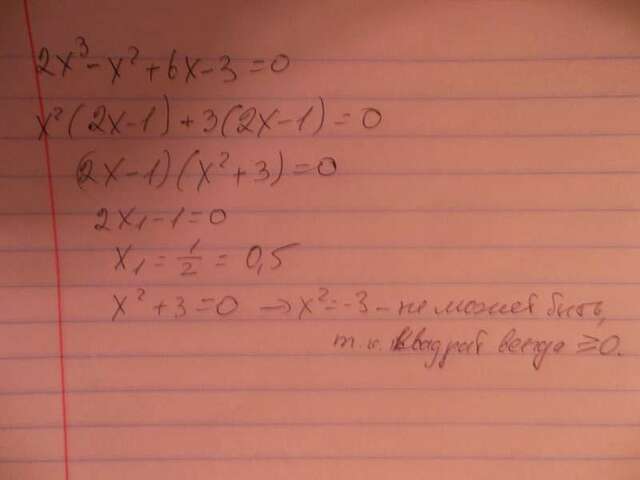 2x³-x²+6x-3=0
x²(2x-1)+3(2x-1)=0
(2x-1)(x²+3)=0
2x₁-1=0
x₁=1/2=0,5
x²+3=0 → x²=-3 - не может быть,
т.к. квадрат всегда ≥0.